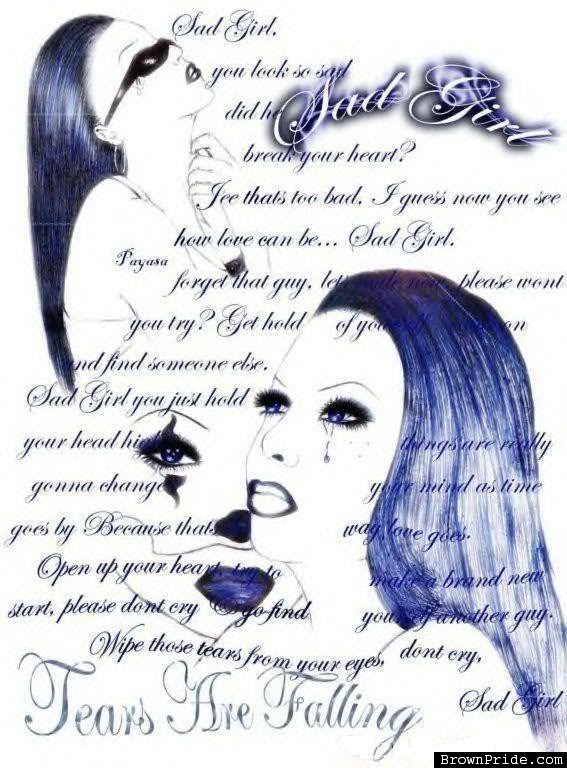 Sad Girl,
you look so sad
did he
Sad Girl
break your heart?
Jee thats too bad, I guess now you see
how love can be... Sad Girl.
Payasa
forget that guy, lets now, please wont
you try? Get hold of yourself on
and find someone else.
Sad Girl you just hold
your head high things are really
gonna change your mind as time
goes by Because thats way, love goes.
Open up your heart, try to make a brand new
start, please dont cry & go find yourself another guy.
Wipe those tears from your eyes, dont cry,
Sad Girl
Tears Are Falling
BrownPride.com